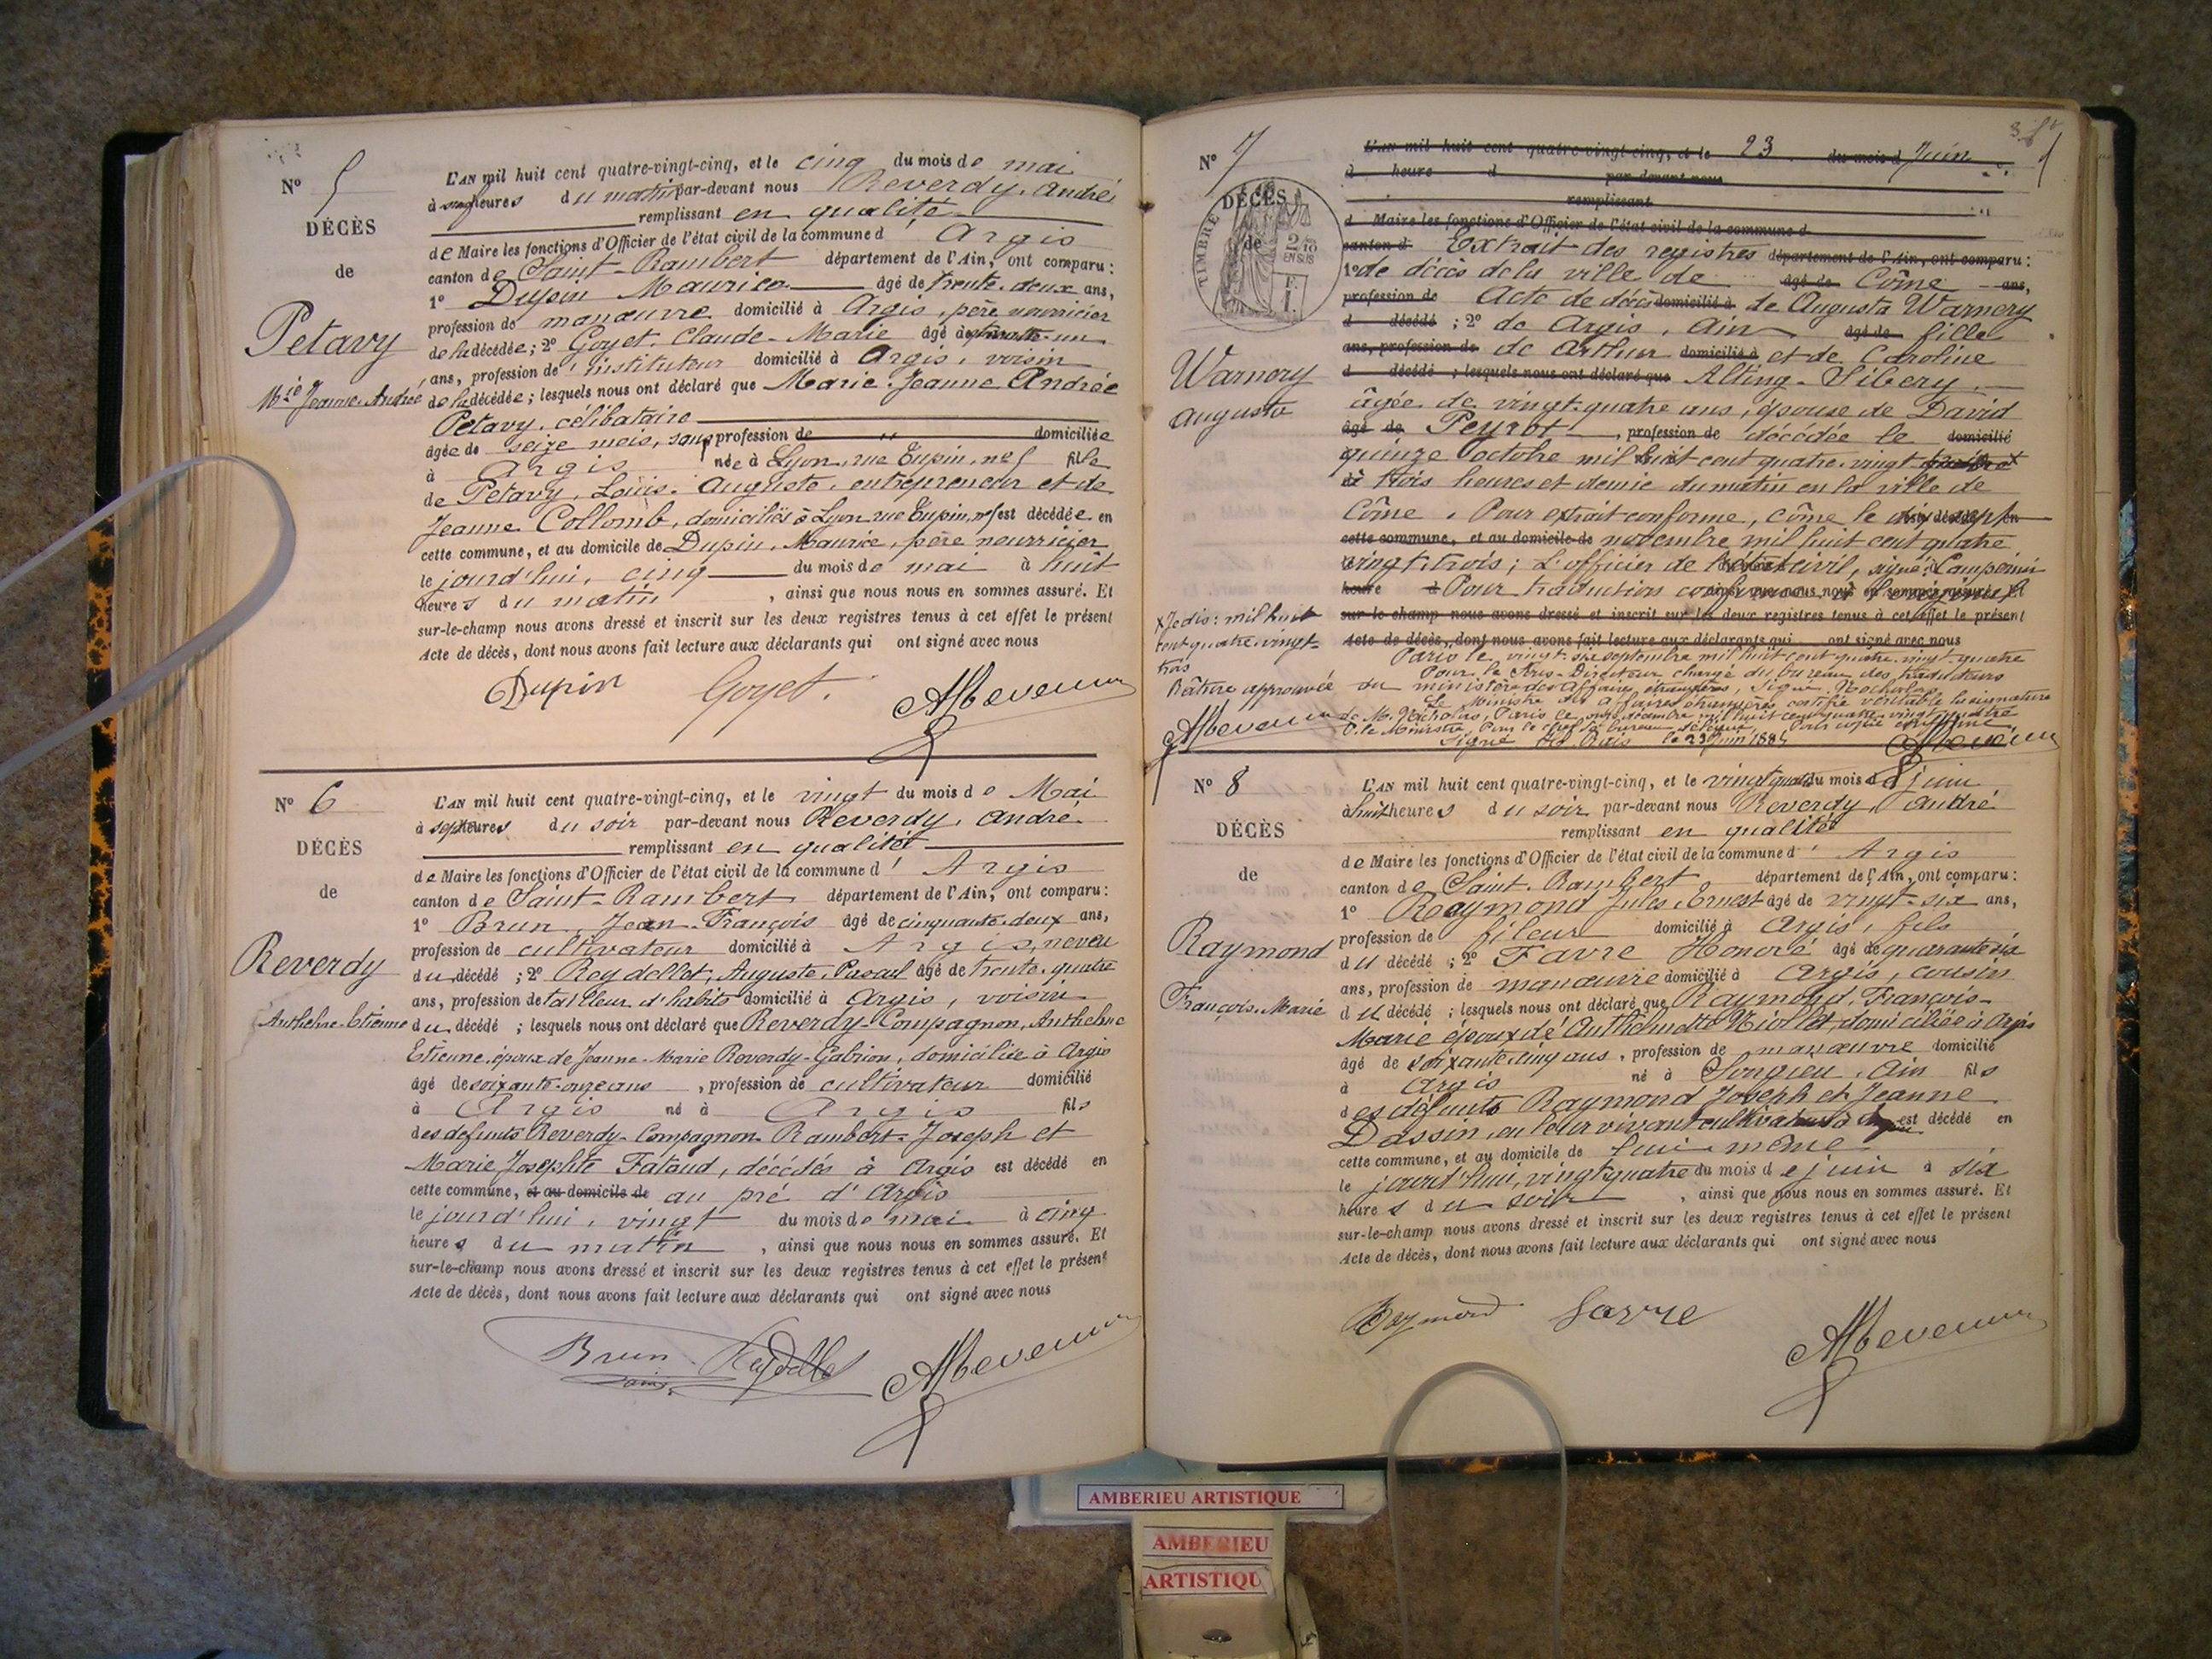 Nº 5
DÉCÈS
de
Petavy
Mie Jeanne Andrée
L'AN mil huit cent quatre-vingt-cinq, et le cinq du mois de mai
à heures du matin par-devant nous Reverdy, André
remplissant en qualité
de Maire les fonctions d'Officier de l'état civil de la commune d'Argis
canton de Saint-Rambert département de l'Ain, ont comparu :
1º Dupin Maurice âgé de trente-deux ans,
profession de manœuvre domicilié à Argis, père nourricier
de la décédée ; 2º Goyet, Claude-Marie âgé de un
ans, profession de instituteur domicilié à Argis, voisin
de la décédée ; lesquels nous ont déclaré que Marie-Jeanne Andrée
Petavy, célibataire
âgée de seize mois, sans profession de " domiciliée
à Argis née à Lyon, rue Tupin, nº 5 fille
de Petavy, Louis-Auguste, entrepreneur et de
Jeanne Collomb, domiciliés à Lyon rue Tupin, nº 5 est décédée en
cette commune, et au domicile de Dupin, Maurice, père nourricier
le jourd'hui, cinq du mois de mai à huit
heures du matin , ainsi que nous nous en sommes assuré. Et
sur-le-champ nous avons dressé et inscrit sur les deux registres tenus à cet effet le présent
Acte de décès, dont nous avons fait lecture aux déclarants qui ont signé avec nous
Dupin Goyet.
Nº 6
DÉCÈS
de
Reverdy
Anthelme-Etienne
L'AN mil huit cent quatre-vingt-cinq, et le vingt du mois de Mai
à sept heures du soir par-devant nous Reverdy, André
remplissant en qualité
de Maire les fonctions d'Officier de l'état civil de la commune d'Argis
canton de Saint-Rambert département de l'Ain, ont comparu :
1º Brun, Jean-François âgé de cinquante-deux ans,
profession de cultivateur domicilié à Argis, neveu
du décédé ; 2º Reydellet, Auguste, Pascal âgé de trente-quatre
ans, profession de tailleur d'habits domicilié à Argis, voisin
du décédé ; lesquels nous ont déclaré que Reverdy-Compagnon, Anthelme
Etienne, époux de Jeanne-Marie Reverdy-Gabrion, domiciliée à Argis
âgé de soixante-onze ans , profession de cultivateur domicilié
à Argis né à Argis fils
des defunts Reverdy-Compagnon-Rambert-Joseph et
Marie Josephte Fataud, décédés à Argis est décédé en
cette commune, et au domicile de au pré d'Argis
le jourd'hui, vingt du mois de mai à cinq
heures du matin , ainsi que nous nous en sommes assuré. Et
sur-le-champ nous avons dressé et inscrit sur les deux registres tenus à cet effet le présent
Acte de décès, dont nous avons fait lecture aux déclarants qui ont signé avec nous
Brun Reydellet
Nº 7
DÉCÈS
de
TIMBRE
2/10
EN SUS
Warnery
Augusta
L'AN mil huit cent quatre-vingt-cinq, et le 23 du mois d Juin
à heure d par-devant nous
remplissant
d Maire les fonctions d'Officier de l'état civil de la commune d
canton d Extrait des registres département de l'Ain, ont comparu :
1º de décès de la ville de âgé de Côme ans,
profession de Acte de décès domicilié à de Augusta Warnery
d décédé ; 2º de Argis, Ain âgé de fille
ans, profession de de Arthur domicilié à et de Caroline
d décédé ; lesquels nous ont déclaré que Alting-Sibery,
âgée de vingt-quatre ans, épouse de David
âgé de Peyrot , profession de décédée le domicilié
quinze octobre mil huit cent quatre-vingt
à trois heures et demie du matin en la ville de
Côme. Pour extrait conforme, Côme le dix-sept
cette commune, et au domicile de novembre mil huit cent quatre
vingt-trois ; L'officier de l'état civil, signé :
heure d Pour traduction ainsi que nous nous en sommes assuré. Et
sur-le-champ nous avons dressé et inscrit sur les deux registres tenus à cet effet le présent
Acte de décès, dont nous avons fait lecture aux déclarants qui ont signé avec nous
Paris le vingt-six septembre mil huit cent quatre-vingt-quatre
Pour le Sous-Directeur chargé du bureau des traducteurs
du ministère des Affaires étrangères, Signé :
Le Ministre des affaires étrangères certifie véritable la signature
de M. Paris le onze décembre mil huit cent quatre-vingt-quatre
P. le Ministre, Pour le chef de bureau délégué, Pour copie conforme
Signé le 23 Juin 1885
x Je dis : mil huit
cent quatre-vingt-
trois
Rature approuvée
Nº 8
DÉCÈS
de
Raymond
François-Marie
L'AN mil huit cent quatre-vingt-cinq, et le vingt quatre du mois de juin
à huit heures du soir par-devant nous Reverdy, André
remplissant en qualité
de Maire les fonctions d'Officier de l'état civil de la commune d'Argis
canton de Saint-Rambert département de l'Ain, ont comparu :
1º Raymond Jules Ernest âgé de vingt-six ans,
profession de fileur domicilié à Argis, fils
du décédé ; 2º Favre Honoré âgé de quarante six
ans, profession de manœuvre domicilié à Argis, cousin
du décédé ; lesquels nous ont déclaré que Raymond, François-
Marie époux de Anthelmette Niollet, domiciliée à Argis
âgé de soixante-cinq ans , profession de manœuvre domicilié
à Argis né à Songieu, Ain fils
des défunts Raymond Joseph et Jeanne
Dassin, en leur vivant cultivateurs à est décédé en
cette commune, et au domicile de lui-même
le jourd'hui, vingt quatre du mois de juin à six
heures du soir , ainsi que nous nous en sommes assuré. Et
sur-le-champ nous avons dressé et inscrit sur les deux registres tenus à cet effet le présent
Acte de décès, dont nous avons fait lecture aux déclarants qui ont signé avec nous
Raymond Favre
AMBERIEU ARTISTIQUE
AMBERIEU
ARTISTIQU